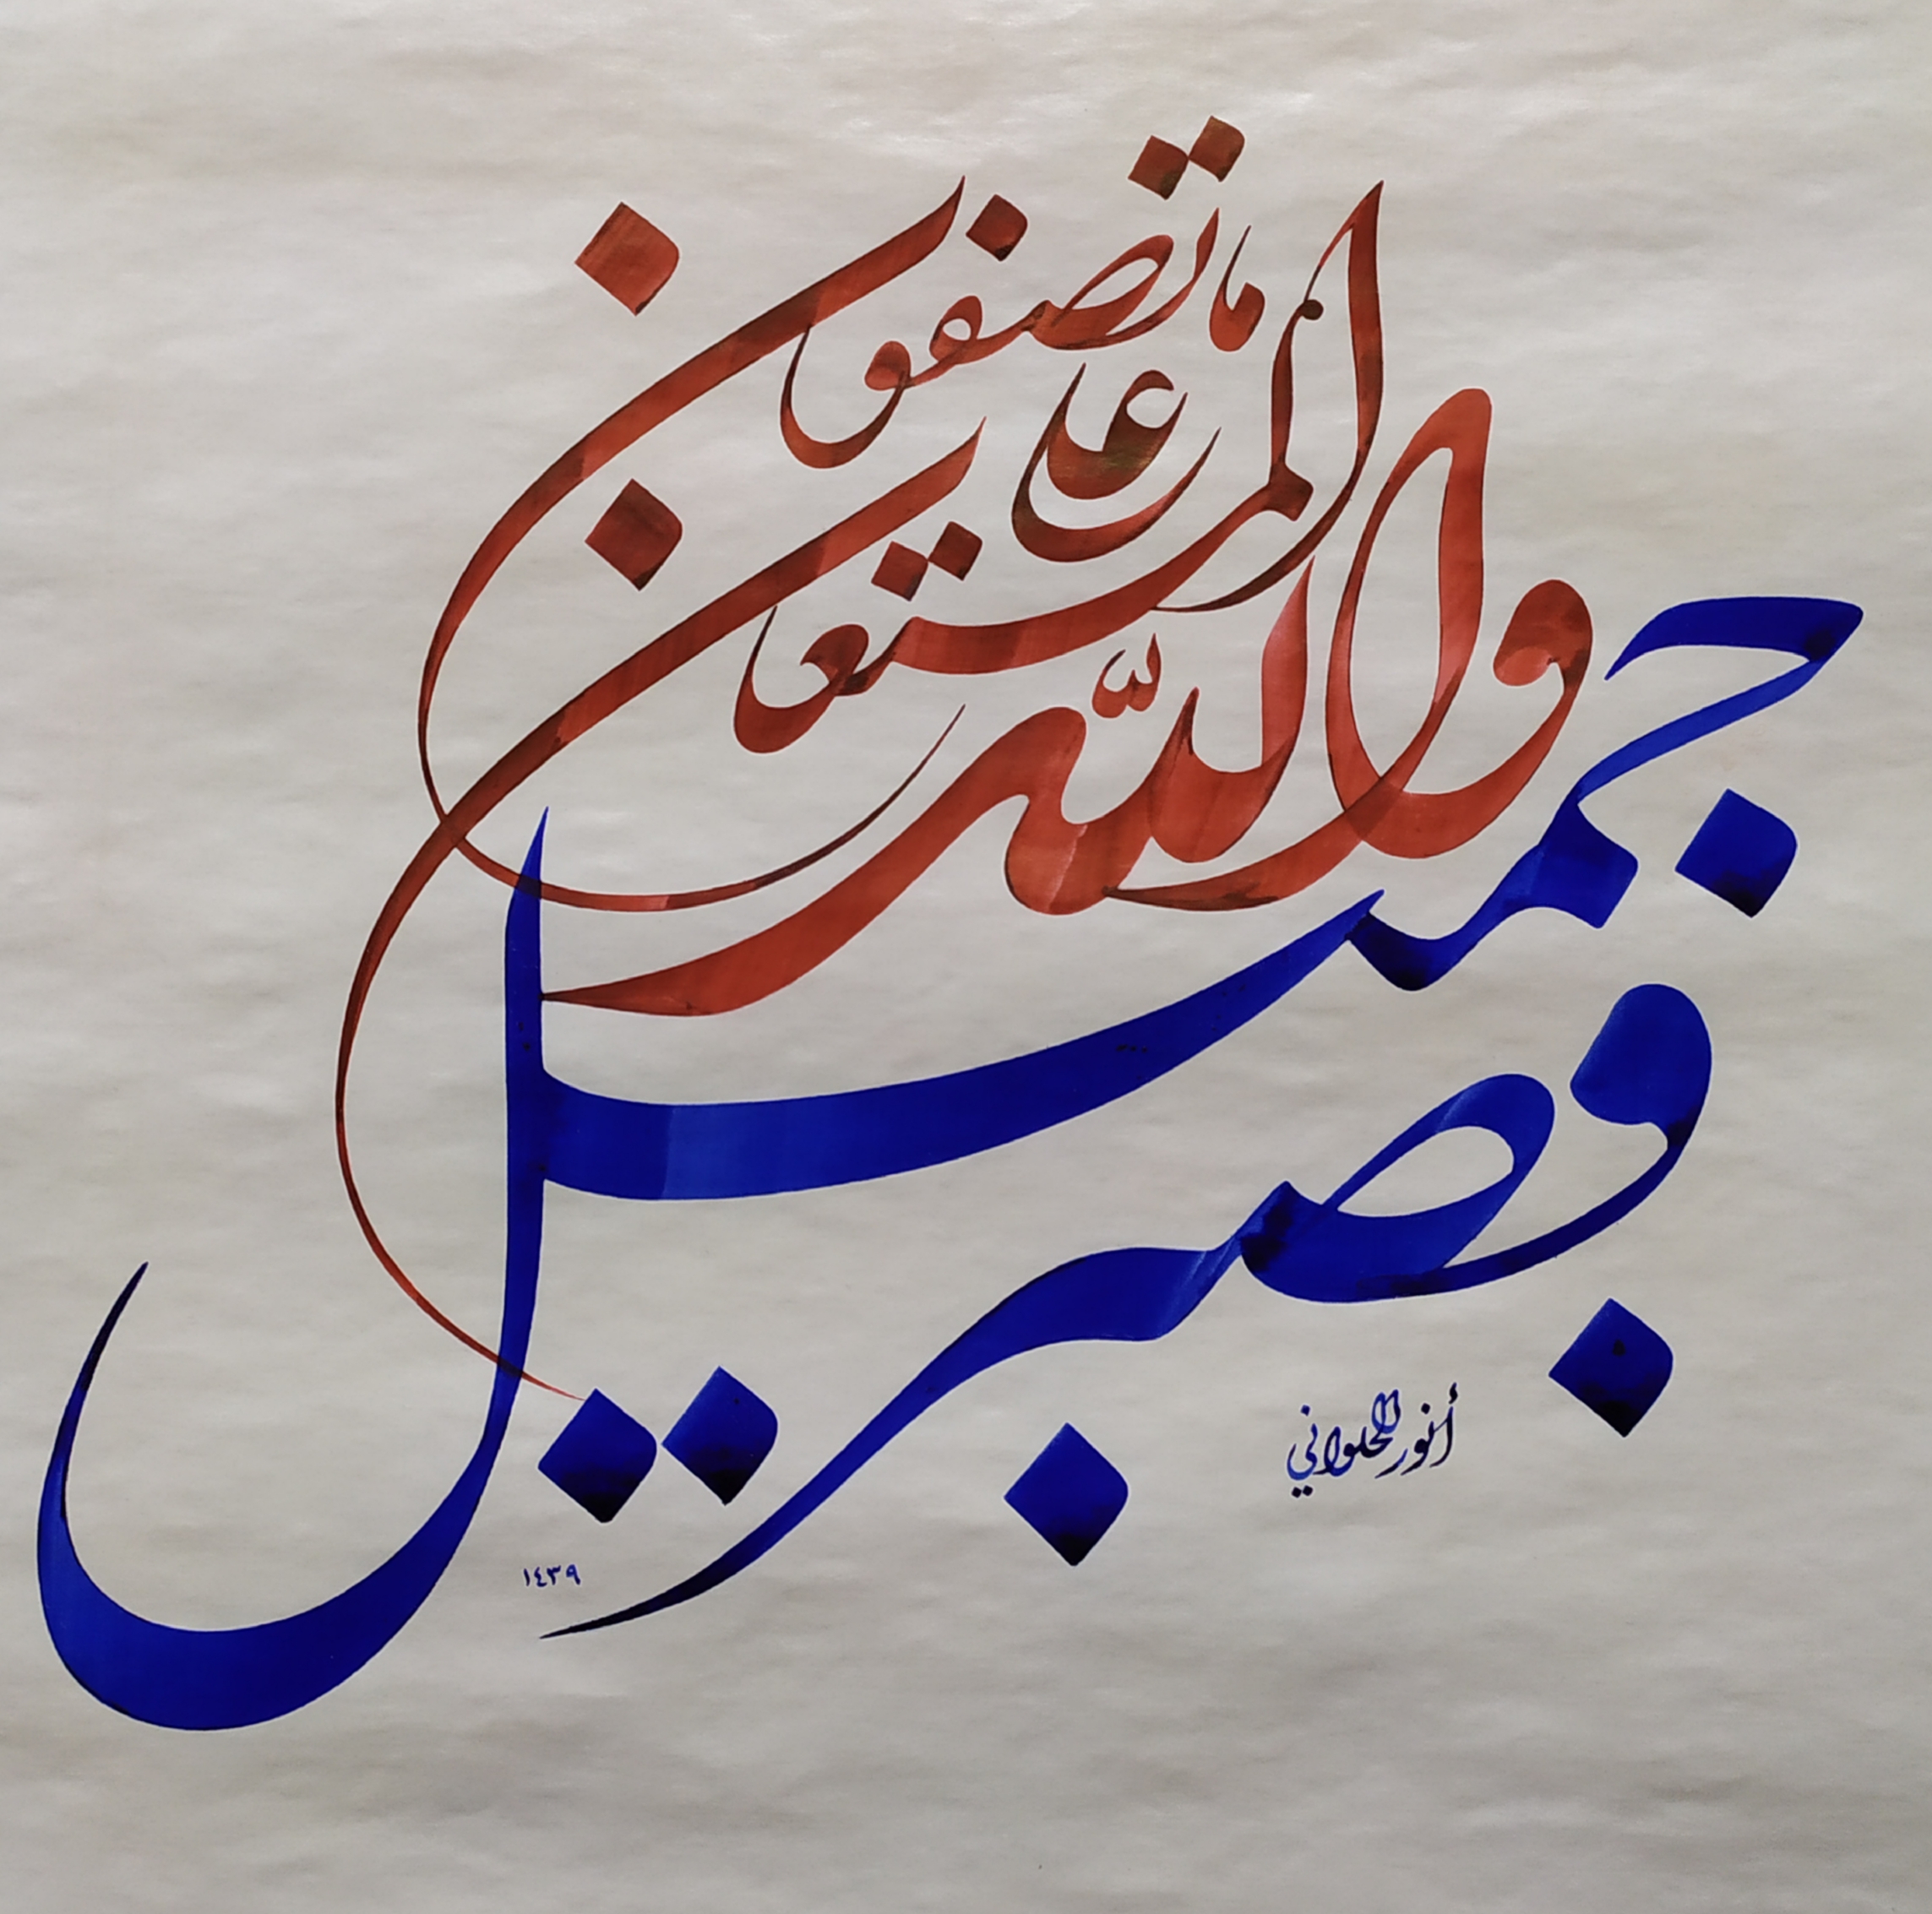 فصبر
جميل
والله
المستعان
على
ما تصفون
أنور الحلواني
١٤٣٩